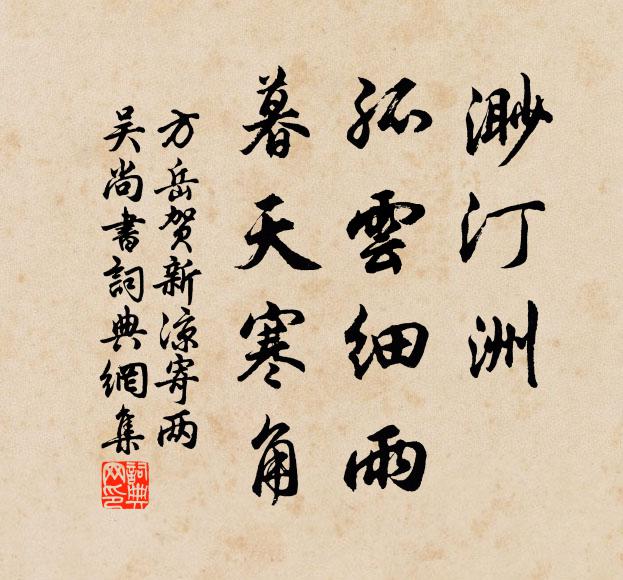 渺汀洲
孤雲細雨
暮天寒角
方岳贺新凉寄两
吴尚書詞典網集
詞典
网印